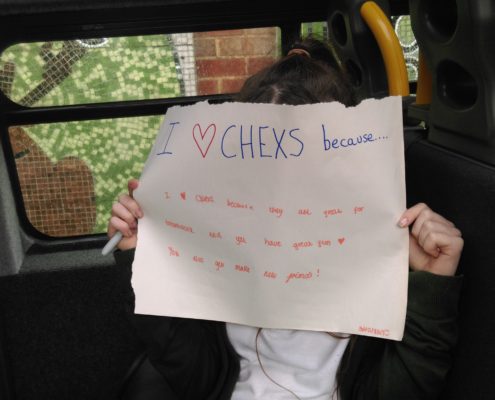 I ♡ CHEXS because....
I ♥ CHEXS because they are great for
and you have great fun ♥
You also get make new friends!